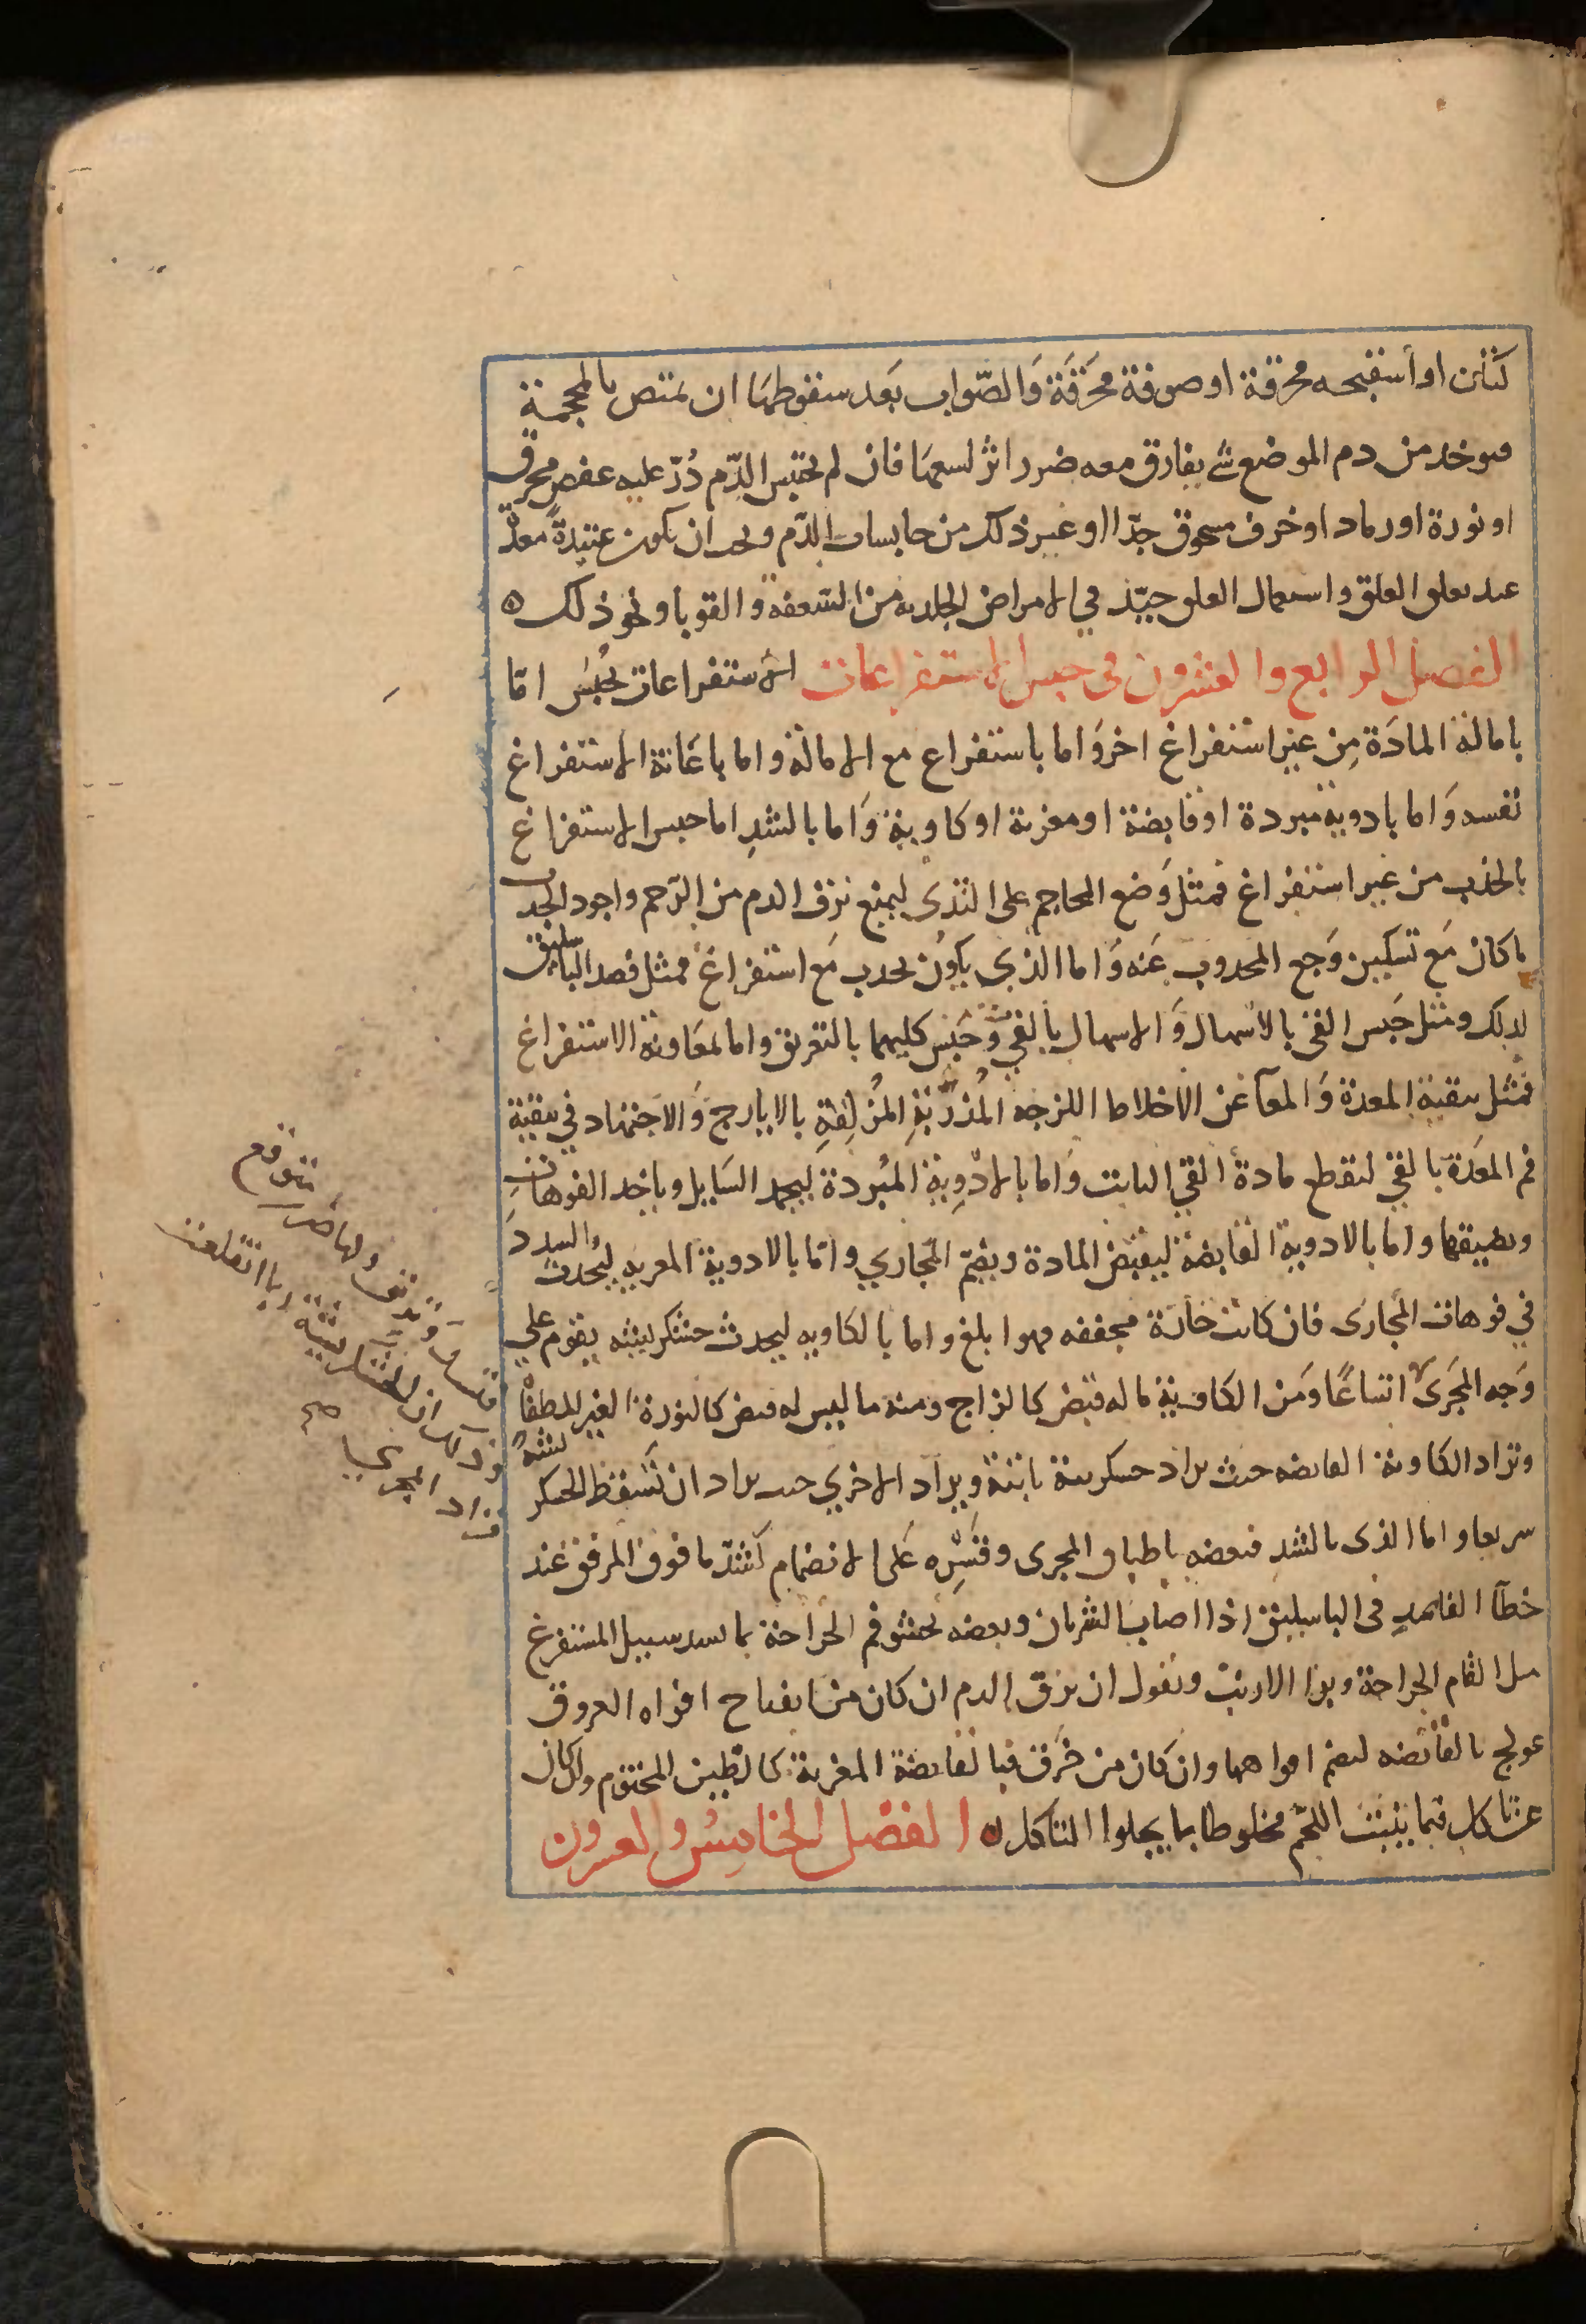 كتان او أسفنجه محرقة او صوفة محَرَقَة وَالصّواب بَعد سقوطهَا ان تمتص بالمحجمة
فىوخد من دم الموضع شئ يفارق معه ضرر اثر لسعهَا فان لم يحتبس الدّم ذُرّ عليه عفص محرق
او نورة او رماد او خزف مسحوق جدّا او غير ذلك من حابسات الدّم وىحب ان تكون عتيدةً معدّة
عند ىعلىق العلق واستعمال العلق جيّد في الامراض الجلديه من السّعفه والقوبا ونحو ذلك ه
الفصل الرابع والعشرون في حبس الاستفراغات الاستفراغات تُحبَسُ امّا
بامالة المادَة مِن غير استفراغ اخر وَاما باستفراغ مع الامالة واما باعَانة الاستفراغ
نفسه وَاما بادوية مبردة او قابضة او مغرية او كاوية وَاما بالشدِ اما حبس الاستفراغ
بالجذب من غير استفراغ فمثل وَضع المحاجم على الثدى ليمنع نزف الدم من الرّحم واجود الجذب
ما كان مَع تسكين وَجع المجذوب عَنه وَاما الذي يكونُ بجذب مَع استفراغ فمثل فصد الباسليق
لذلك ومثل حَبس القئ بالاسهال وَالاسهال بالقئ وَحَبس كليهما بالتعريق واما لمعَاونة الاستفراغ
فمثل تنقية المعدة وَالمعآ عن الاخلاط اللزجه المُذرّبَةِ المُزلِقةِ بالايارج وَالاجتهاد في تنقية
فم المعَدة بالقئ لتقطع مادة القئ الثابت وَاما بالادْوِية المُبردة ليجمد السَايل وياخد الفوهات
وىضيقها واما بالادوية القابضة ليقبض المادة ويضمّ المجَاري وامّا بالادوية المغريه ليُحدث السدد
في فوهات المجارى فان كانت حَارّة مجففه فهوا بلغ واما بالكاويه ليحدث خشكريشه يقوم علي
وَجه المجَرى اتساعًا وَمن الكاوية ما له قبض كالزاج ومنه ما ليس له قبض كالنورة الغير المطفاْ
وتراد الكاوية القابضه حيث يراد خشكريشة ثابتة ويراد الاخري حيث يراد ان تسقط الخشكر يشة
سريعا واما الذى بالشد فبعضه باطباق المجرى وقسرِه عَلى الانضمام كشدّ ما فوق المرفق عند
خطآ الفاصدِ فى الباسليق اذا اصاب الشريان وبعضه بحشو فم الجراحة بما يسد سبيل المستفرغ
مثل القام الجراحة وبر الارنب ونقول ان نزف الدم ان كان من انفتاح افواه العروق
عولج بالقابضه لىضم افواهها وان كان من خَرق فبالقابضة المغرية كالطّين المختوم وان كان
عن تاكل فبما ينبت اللحم مخلوطا بما يجلوا التاكل ه الفصْل الخامِسُ والعشرون